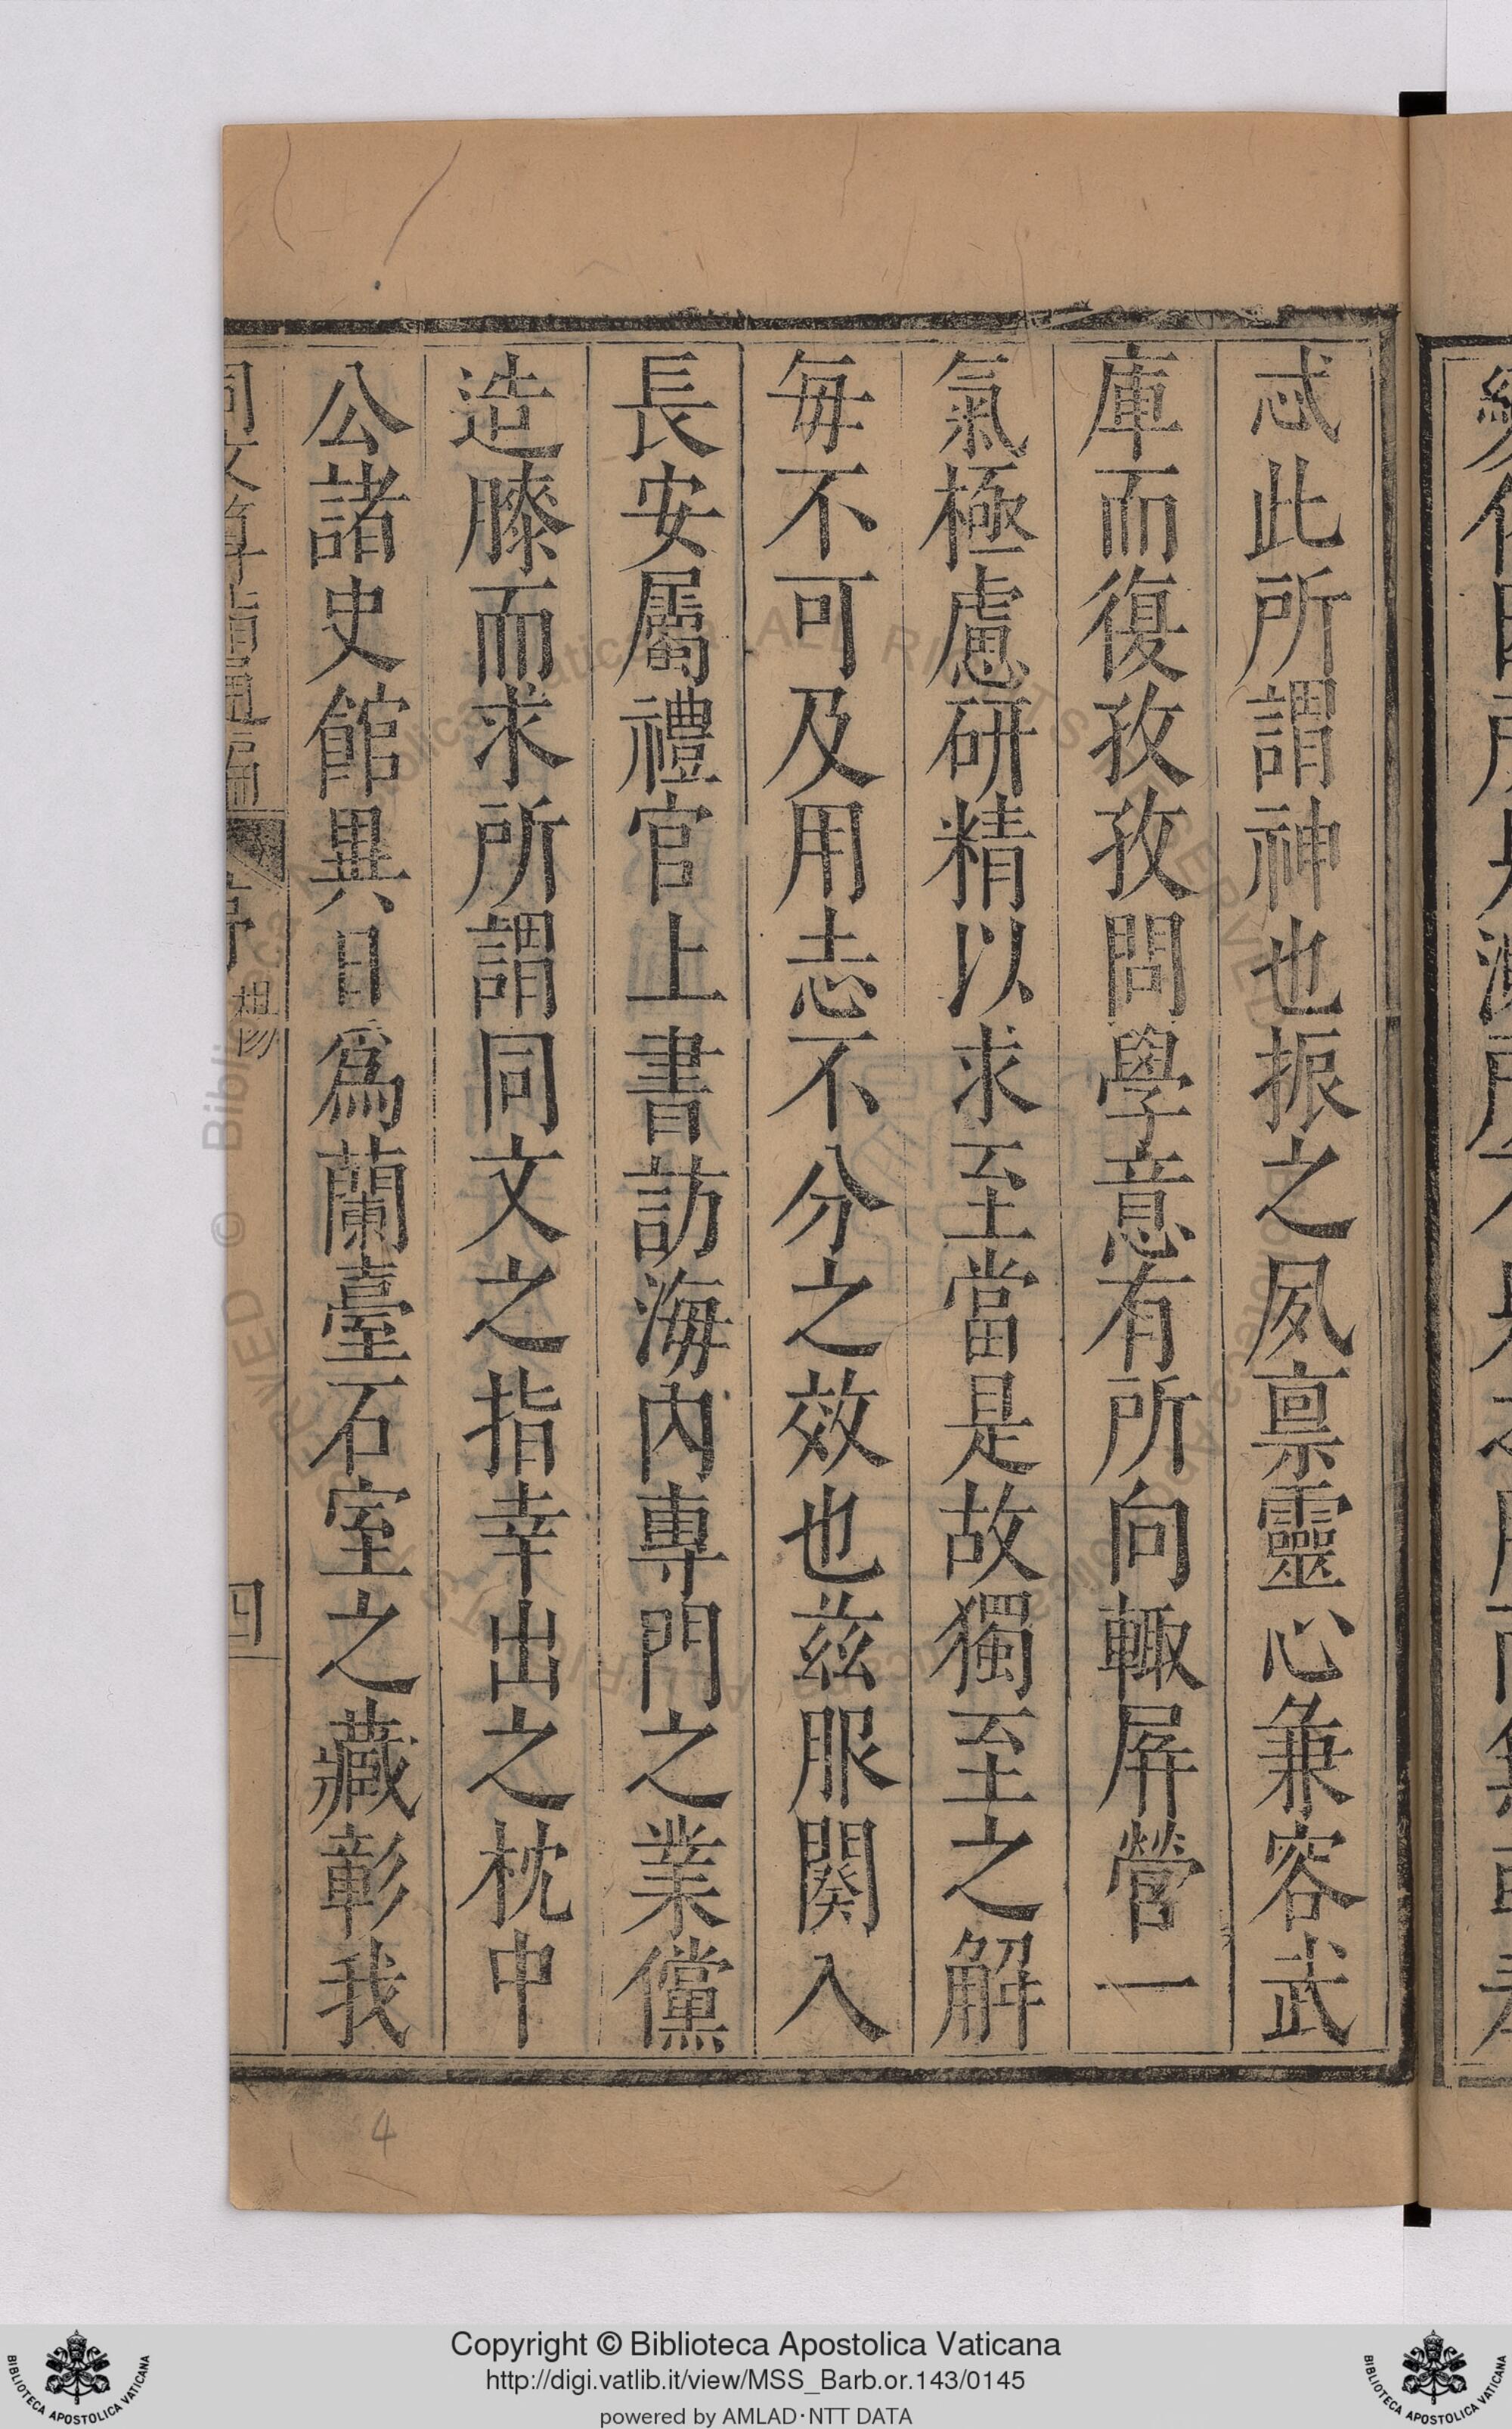 忒此所謂神也振之夙禀靈心兼容武
庫而復孜孜問學意有所向輙屏營一
氣極慮研精以求至當是故獨至之解
毎不可及用志不分之效也茲服闋入
長安屬禮官上書訪海內專門之業儻
造膝而求所謂同文之指幸出之枕中
公諸史館異日爲蘭臺石室之藏彰我
同文算指通編
序
楊
四
4
Copyright © Biblioteca Apostolica Vaticana
http://digi.vatlib.it/view/MSS_Barb.or.143/0145
powered by AMLAD·NTT DATA
BIBLIOTECA APOSTOLICA VATICANA
BIBLIOTECA APOSTOLICA VATICANA